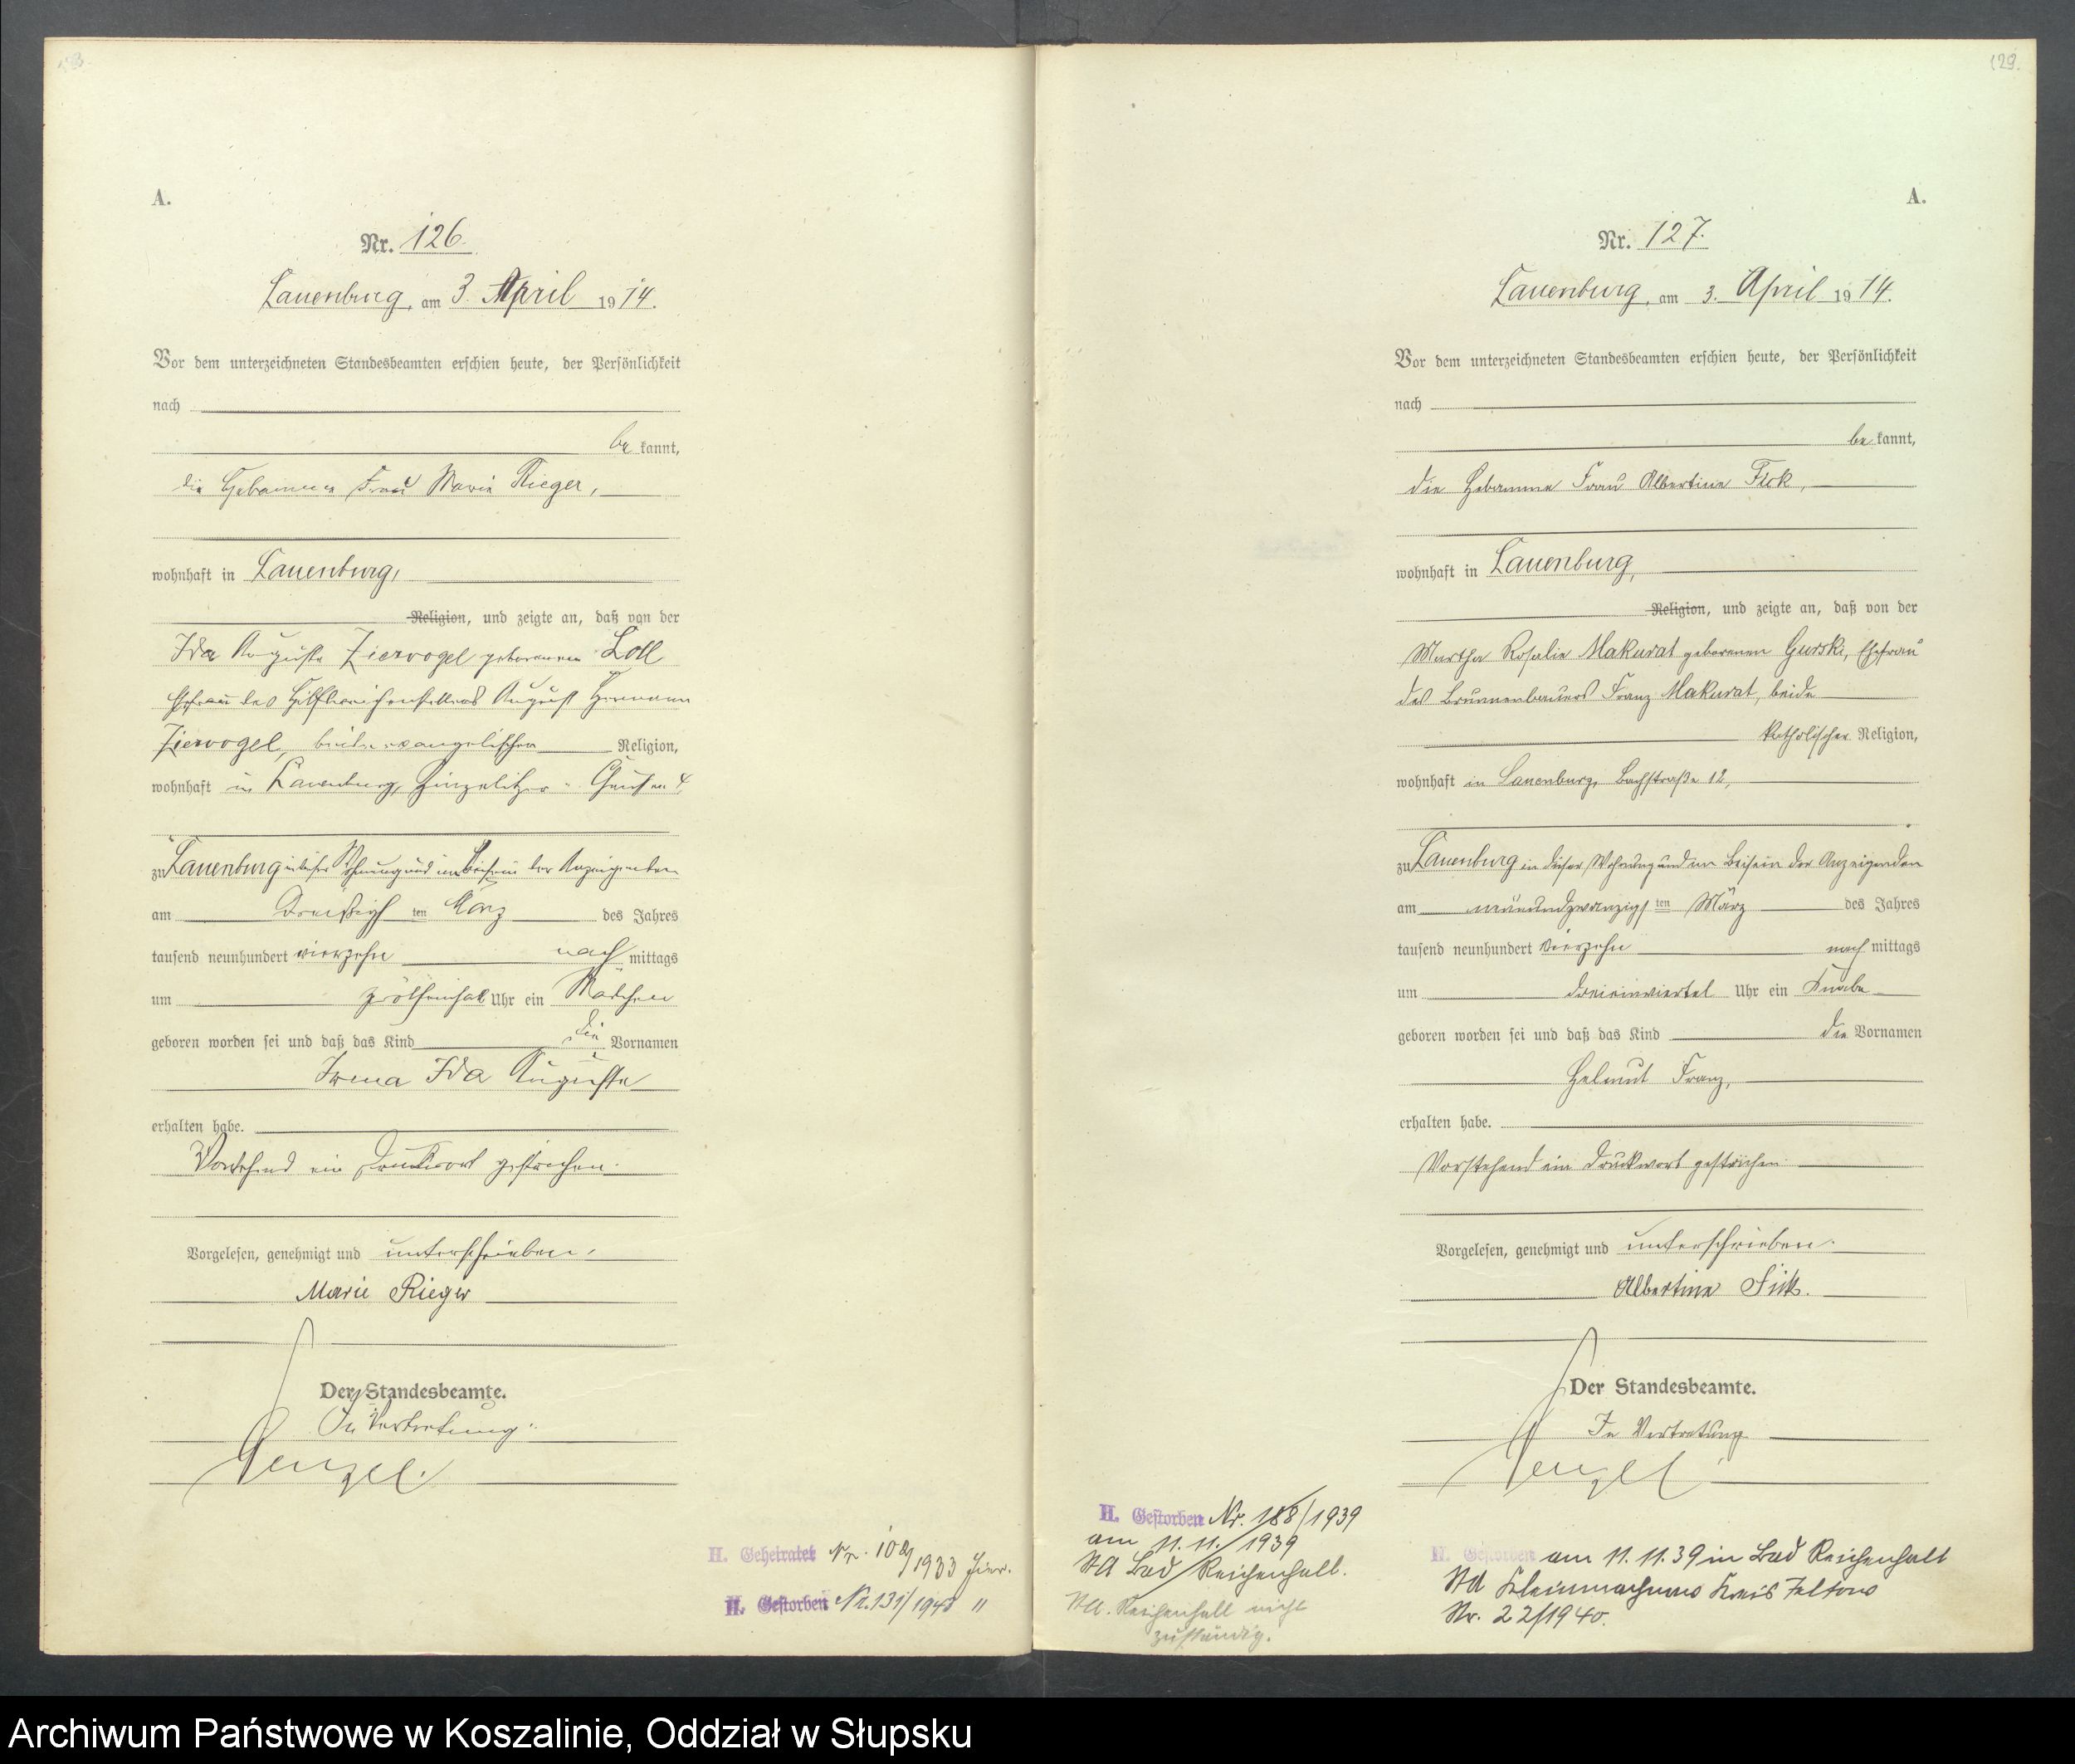 A.
Nr. 126.
Lauenburg, am 3. April 1914.
Vor dem unterzeichneten Standesbeamten erschien heute, der Persönlichkeit
nach
be kannt,
die Hebamme Frau Marie Rieger,
wohnhaft in Lauenburg,
Religion, und zeigte an, daß von der
Ida Auguste Ziervogel geborenen Loll
Ehefrau des Hilfsweichenstellers August Hermann
Ziervogel, beide evangelischer Religion,
wohnhaft in Lauenburg, Chaussee 4,
zu Lauenburg in dieser Wohnung und im Beisein der Anzeigenden
am dreißigsten März des Jahres
tausend neunhundert vierzehn nach mittags
um zwölfeinhalb Uhr ein Mädchen
geboren worden sei und daß das Kind die Vornamen
Irma Ida Auguste
erhalten habe.
Vorstehend ein Druckwort gestrichen.
Vorgelesen, genehmigt und unterschrieben.
Marie Rieger
Der Standesbeamte.
In Vertretung.
H. Geheiratet Nr. 102/1933 hier.
H. Gestorben Nr. 131/1940 "
129.
A.
Nr. 127.
Lauenburg, am 3. April 1914.
Vor dem unterzeichneten Standesbeamten erschien heute, der Persönlichkeit
nach
be kannt,
die Hebamme Frau Albertine Fick,
wohnhaft in Lauenburg,
Religion, und zeigte an, daß von der
Martha Rosalie Makurat geborenen Gurski, Ehefrau
des Brunnenbauers Franz Makurat, beide
katholischer Religion,
wohnhaft in Lauenburg, Bachstraße 12,
zu Lauenburg in dieser Wohnung und im Beisein der Anzeigenden
am neunundzwanzigsten März des Jahres
tausend neunhundert vierzehn nach mittags
um dreieinviertel Uhr ein Knabe
geboren worden sei und daß das Kind die Vornamen
Helmut Franz,
erhalten habe.
Vorstehend ein Druckwort gestrichen
Vorgelesen, genehmigt und unterschrieben.
Albertine Fick.
Der Standesbeamte.
In Vertretung
H. Gestorben Nr. 188/1939
am 11.11.1939
StA Bad Reichenhall.
StA. Reichenhall nicht
zuständig.
H. Gestorben am 11.11.39 in Bad Reichenhall
StA Kleinmachnow Kreis Teltow
Nr. 22/1940.
Archiwum Państwowe w Koszalinie, Oddział w Słupsku